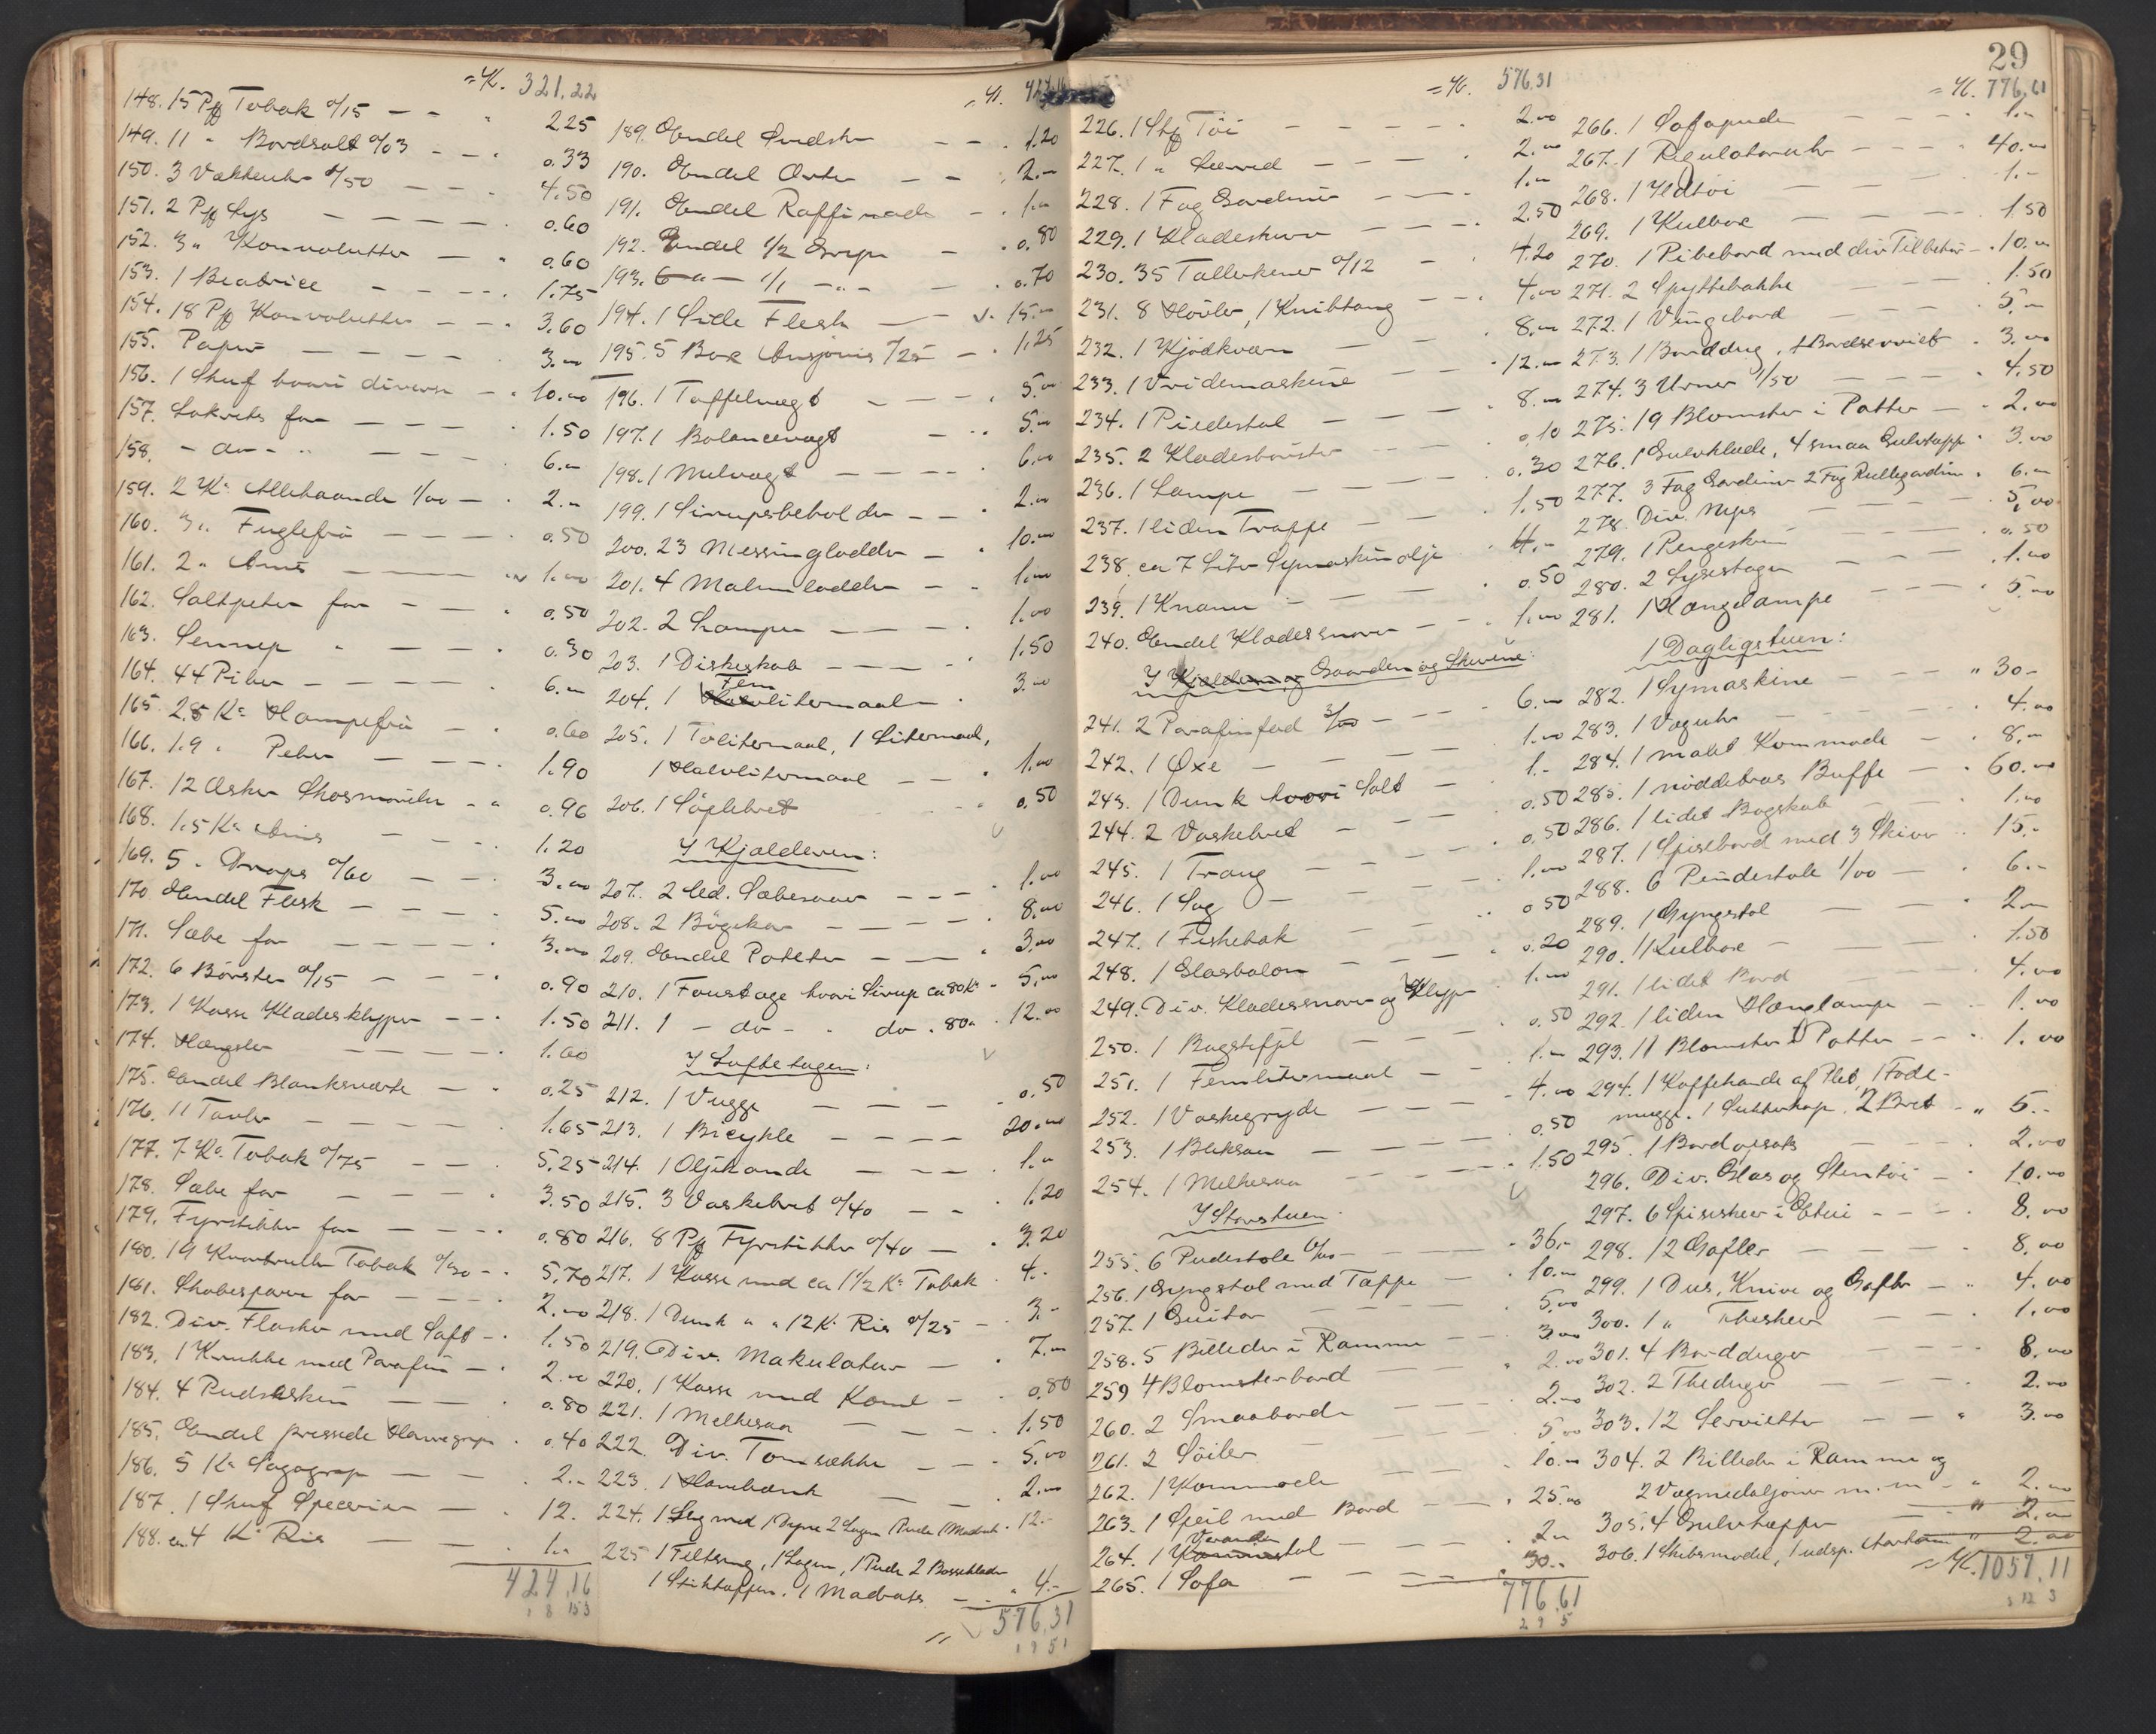 = Kr. 321.22
148. 15 Pk Tobak 0/15 — — " 2.25
149. 11 " Bordsalt 0/03 — — " 0.33
150. 3 Vækkeuhr 1/50 — — " 4.50
151. 2 Pk Lys — — — — 0.60
152. 3 " Konvolutter — " 0.60
153. 1 Beatrice — — — — 1.75
154. 18 Pk Konvolutter — — 3.60
155. Papir — — — — 3.00
156. 1 Skuf hvori diverse — " 10.00
157. Lakrits for — — — 1.50
158. - do - " — — — 6.00
159. 2 Ko Allehaande 1/00 — " 2.00
160. 3 " Fuglefrö — — — 0.50
161. 2 " Anis — — — 1.00
162. Saltpeter for — — 0.50
163. Sennep " — — 0.30
164. 44 Piber — — — 6.00
165. 2.8 Ko Hampefrö — — 0.60
166. 1.9 " Peber — — — 1.90
167. 12 Æsker Skosmörelse - " 0.96
168. 1.5 Ko Anis — — 1.20
169. 5 " Drops 0/60 — — 3.00
170 Endel Flesk — — — 5.00
171. Sæbe for — — — 3.00
172. 6 Börster 0/15 — — 0.90
173. 1 Kasse Klædesklyper — — 1.50
174. Hængsler — — — 1.00
175. Endel Blanksværte — " 0.25
176. 11 Tavler — — — 1.65
177. 7 Ko. Tobak 0/75 — — 5.25
178. Sæbe for — — — 3.50
179. Fyrstikker for — — — 0.80
180. 19 Kvartruller Tobak 0/30 - " 5.70
181. Skobespare for — — — 2.00
182. Div. Flasker med Saft - " 1.50
183. 1 Krukke med Parafin — " 2.00
184. 4 Pudseskin — — 0.80
185. Endel pressede Havregryn " 0.40
186. 5 Ko Sagogryn — — 2.-
187. 1 Skuf Specerier — " 12.
188. ca. 4 Ko Ris — — 1.-
424.16
189. Endel — — 1.20
190. Endel Erter — — 2.-
191. Endel Raffinade — " 1.-
192. Endel 1/2 Gryn — " 0.80
193. 6 " - 1/1 - " - — " 0.70
194. 1 Side Flesk — — 15.-
195. 5 Box Ansjovis 0/25 — " 1.25
196. 1 Taffelvægt — — — 5.00
197. 1 Balancevægt — " 5.00
198. 1 Melvægt — — — 6.00
199. 1 Sirupsbeholder — — 2.00
200. 23 Messinglodder — " 10.00
201. 4 Malmlodder — " 1.00
202. 2 Lamper — — — 1.00
203. 1 Diskeskab — — — 1.50
204. 1 Femlitermaal — 3.00
205. 1 Tolitermaal, 1 Litermaal,
1 Halvlitermaal — — " 1.00
206. 1 Söplebret " 0.50
I Kjælderen:
207. 2 led. Sæbesaaer — — 1.00
208. 2 Bögekar — — — 8.00
209. Endel Poteter — — " 3.00
210. 1 Foustage hvori Sirup ca 80 Ko - 5.00
211. 1 - do - " do " 80 " " 12.00
I Loftetagen:
212. 1 Vugge — — — 0.50
213. 1 Bicykle — — — 20.00
214. 1 Oljekande — — — 1.00
215. 3 Vaskebret 0/40 — — 1.20
216. 8 Pk Fyrstikker 0/40 — " 3.20
217. 1 Kasse med ca 1 1/2 Ko Tobak " 4.-
218. 1 Dunk " " 12 Ko Ris 0/25 — 3.-
219. Div. Makulatur — " 7.00
220. 1 Kasse med Kanel — " 0.80
221. 1 Melkesaa — — — 1.50
222. Div. Tomsække — — — 5.00
223. 1 Havebænk — — 2.00
224. 1 Seng med 1 Dyne 2 Lagen 1 Pude 1 Madrats " 12.-
225 1 Feltseng, 1 Lagen, 1 Pude 2
1 Stiktæppe, 1 Madrats — " 4.-
576.31
29
= Kr. 576.31
226. 1 Stk Töi — — — 2.00
227. 1 " Lærred — — — 2.00
228. 1 Fag Gardiner — — 1.00
229. 1 Klædeskurv — — 2.50
230. 35 Tallerkener 0/12 — " 4.20
231. 8 Hövler, 1 Knibtang — " 4.00
232. 1 Kjödkværn — — 8.00
233. 1 Vridemaskine — — " 12.00
234. 1 Piedestal — — — 8.00
235. 2 Klædesbörster — — 0.10
236. 1 Lampe — — — 0.30
237. 1 liden Trappe — — 1.50
238 ca 7 Liter Symaskinolje " 4.-
239. 1 Knann — — — 0.50
240. Endel Klædessnorer — — 1.00
I Kjælderen og Gaarden og Skuvene:
241. 2 Parafinfad 3/00 — — 6.00
242. 1 Øxe — — — 1.00
243. 1 Dunk hvori Salt — 1.-
244. 2 Vaskebret — — — 0.50
245. 1 Trang — — — 0.50
246. 1 Sag — — — 1.00
247. 1 Fiskebak — — — 0.50
248. 1 Glasbalon — — — 0.20
249. Div. Klædessnorer og Klyper " 1.00
250. 1 Bagstefjel — — 0.50
251. 1 Femlitermaal — — 1.-
252. 1 Vaskegryde — — — 4.00
253. 1 Bliksaa — — — 0.50
254. 1 Melkesaa — — — 1.50
I Storstuen
255. 6 Pudestole 6/00 — " 36.-
256. 1 Gyngstol med Tæppe — " 10.00
257. 1 Guitar — — — 5.00
258. 5 Billeder i Ramme — — 3.00
259 4 Blomsterbord — " 2.00
260. 2 Smaaborde — — 2.00
261. 2 Söiler — — 5.00
262. 1 Kommode — — " 10.00
263. 1 Speil med Bord — — " 25.00
264. 1 Verandastol — — — 2.00
265. 1 Sofa — — — 30.-
776.61
= Kr. 776.61
266. 1 Sofapude — — — 1.-
267. 1 Regulatoruhr — — — 40.00
268. 1 Ildtöi — — — 1.-
269. 1 Kulboxe — — — 1.50
270. 1 Pibebord med div Tilbehör — " 10.00
271. 2 Spyttebakke — — 1.50
272. 1 Vingebord — — — 5.00
273. 1 Borddug, 1 Bordserviet " 3.00
274. 3 Urner 1/50 — — " 4.50
275. 19 Blomster i Potter — " 2.00
276. 1 Gulvklæde, 4 smaa Gulvtæpp " 3.00
277. 3 Fag Gardiner 2 Fag Rullegardin " 6.00
278. Div. Nips — — — 5.00
279. 1 Pengeskrin — — 0.50
280. 2 Lysestager — — 1.00
281. 1 Hængelampe — — — 5.00
I Dagligstuen:
282. 1 Symaskine — — " 30.-
283. 1 Væguhr — — — 4.00
284. 1 malet Kommode — " 8.00
285. 1 nöddetræs Buffe — " 60.00
286. 1 lidet Bogskab — — 1.00
287. 1 Spisebord med 3 Skiver " 15.-
288. 6 Pindestole 1/00 — " 6.-
289. 1 Gyngstol — — 2.00
290. 1 Kulboxe — — 1.50
291. 1 lidet Bord — — 4.00
292. 1 liden Hænglampe — — 1.00
293. 11 Blomster i Potter — — " 1.00
294. 1 Kaffekande af Plet, 1 Fløde-
mugge, 1 Sukkerkop, 2 Bret — " 5.-
295. 1 Bordopsats — — 2.00
296. Div. Glas og Stentöi — " 10.00
297. 6 Spiseskeer i Etui — — 8.00
298. 12 Gafler — — — 8.00
299. 1 Dus. Knive og Gafler — " 4.00
300. 1 " Theskeer — — 1.00
301. 4 Bordduger — — — 8.00
302. 2 Theduger — — — 2.00
303. 12 Servietter — — " 3.00
304. 2 Billeder i Ramme og
2 Vægmedaljoner m. m — " 2.00
305. 4 Gulvtæpper — — " 2.00
306. 1 Skibsmodel, 1 udsp. " 2.00
= Kr. 1057.11